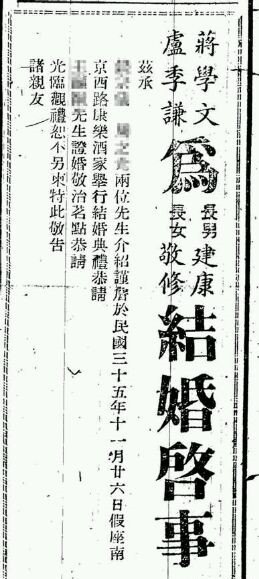 蔣學文
盧季謙
為
長男 建康
長女 敬修
結婚啓事
茲承
兩位先生介紹謹詹於民國三十五年十一月廿六日假座南
京西路康樂酒家舉行結婚典禮恭請
先生證婚敬治茗點恭請
光臨觀禮恕不另柬特此敬告
諸親友